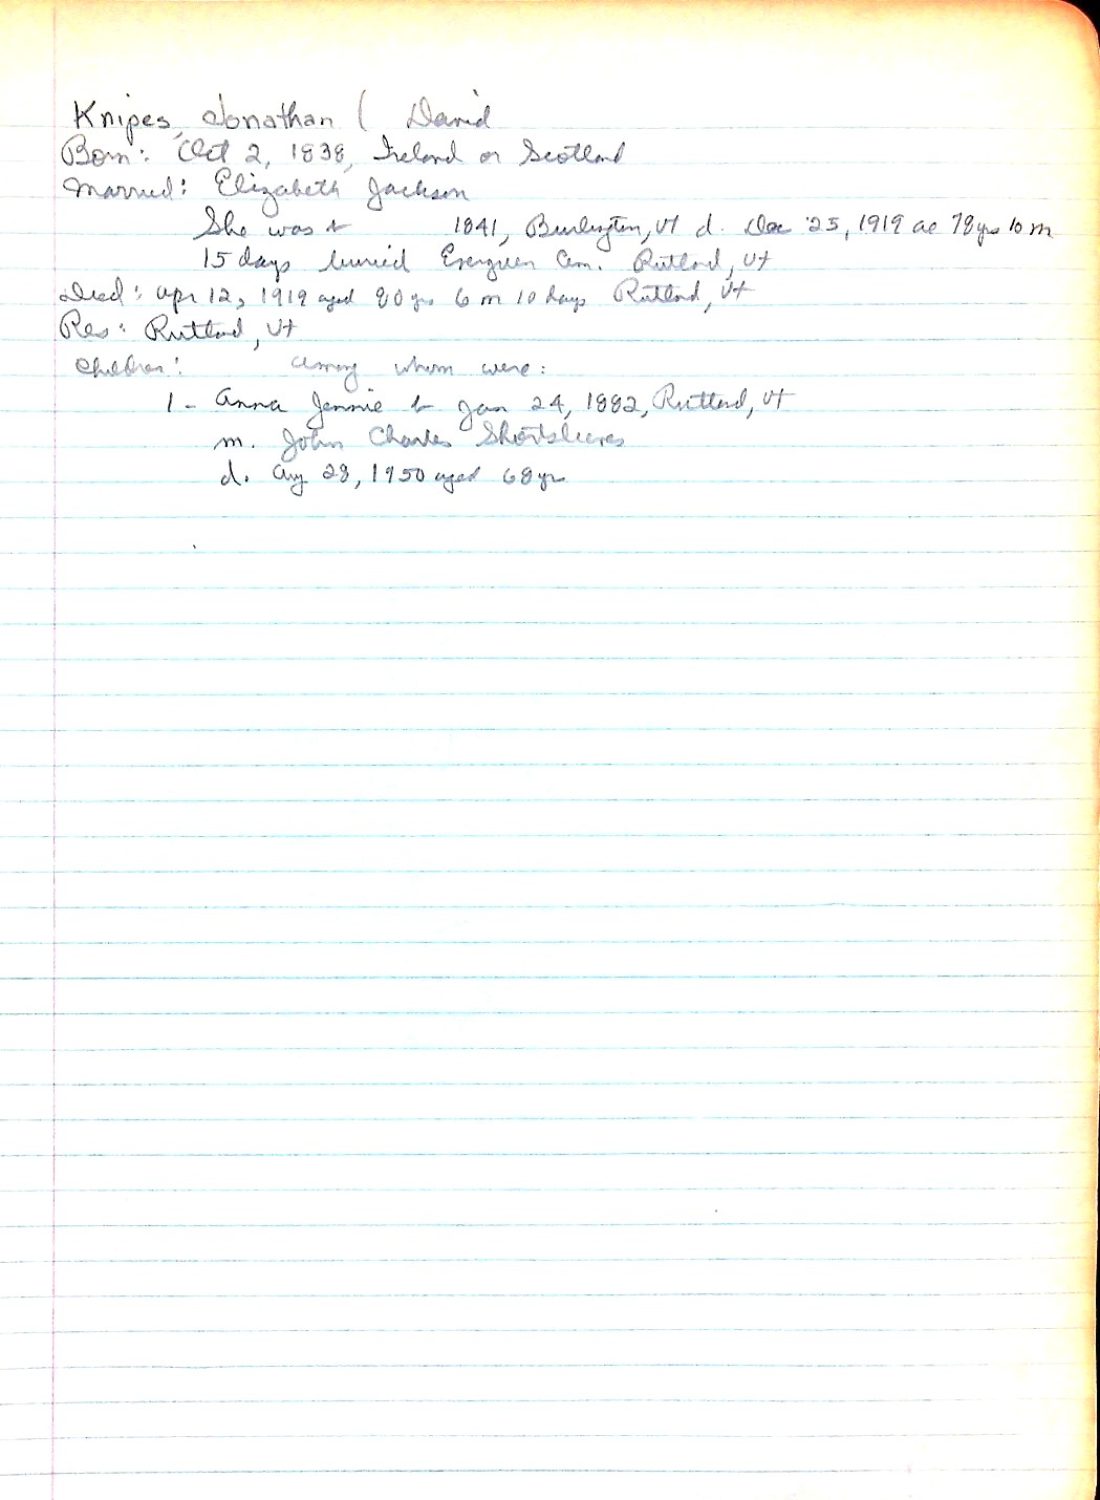 Knipes, Jonathan ( David
Born: Oct 2, 1838, Ireland or Scotland
Married: Elizabeth Jackson
She was b 1841, Burlington, Vt d. Dec 25, 1919 ae 78 yrs 10 m
15 days buried Evergreen Cem. Rutland, Vt
Died: Apr 12, 1919 aged 80 yrs 6 m 10 days Rutland, Vt
Res: Rutland, Vt
Children: among whom were:
1 - Anna Jennie b Jan 24, 1882, Rutland, Vt
m. John Charles Shortsleeves
d. Aug 28, 1950 aged 68 yrs